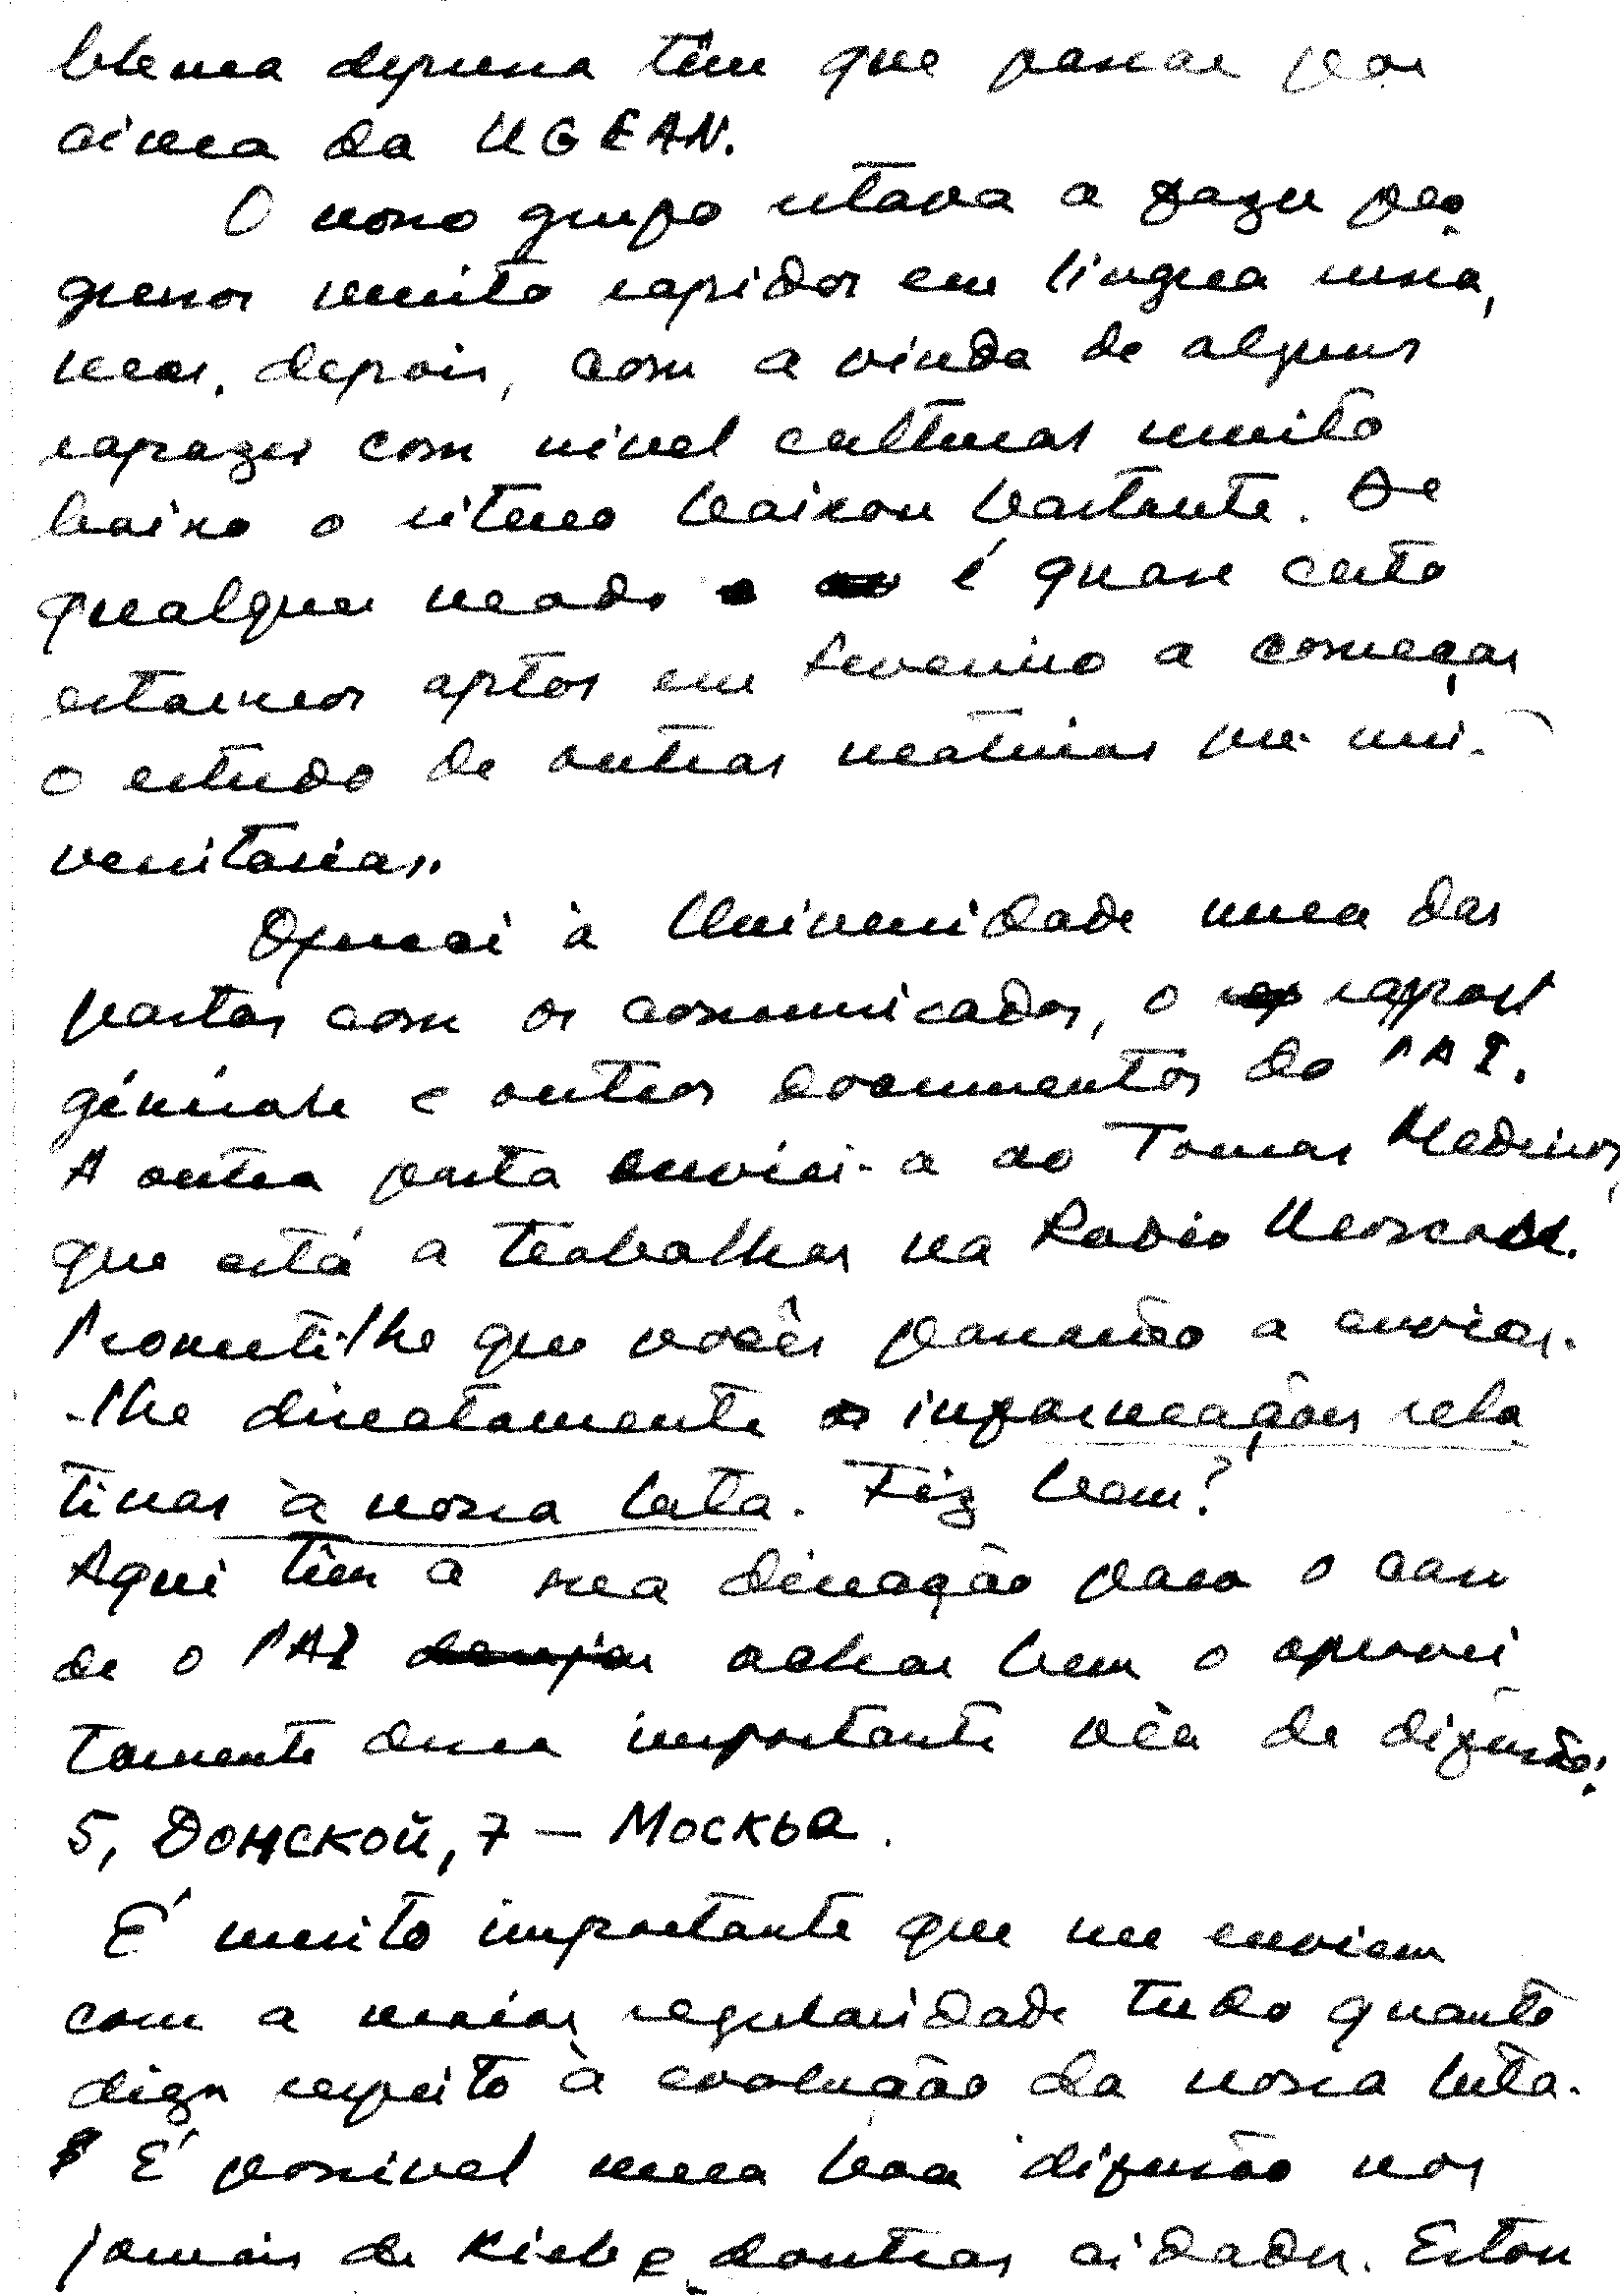 blema depressa têm que passar por
cima da UGEAN.
O nosso grupo estava a fazer pro-
gressos muito rapidos em lingua russa,
mas, depois, com a vinda de alguns
rapazes com nivel cultural muito
baixo o ritmo baixou bastante. De
qualquer modo é quase certo
estarmos aptos em Fevereiro a começar
o estudo de outras matérias pre-uni-
versitarias.
Ofereci à Universidade uma das
pastas com os comunicados, o rapport
générale e outros documentos do PAI.
A outra pasta enviei-a ao Tomas Medeiros,
que está a trabalhar na Radio Moscovo.
Prometi-lhe que vocês passarão a enviar-
-lhe directamente informações rela-
tivas à nossa luta. Fiz bem?
Aqui têm a sua direcção para o caso
de o PAI achar bem o aprovei
tamento dessa importante via de difusão:
5, Донской, 7 – Москва.
É muito importante que me enviem
com a maior regularidade tudo quanto
diga respeito à evolução da nossa luta.
É possivel uma boa difusão nos
jornais de Kieb e doutras cidades. Estou